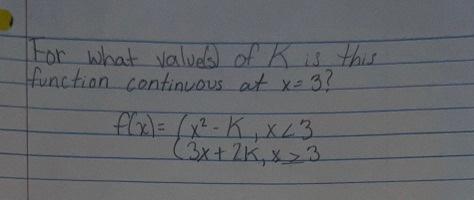 For what value(s) of K is this
function continuous at x=3?
f(x)= { x² - K, x<3
{ 3x + 2K, x ≥ 3